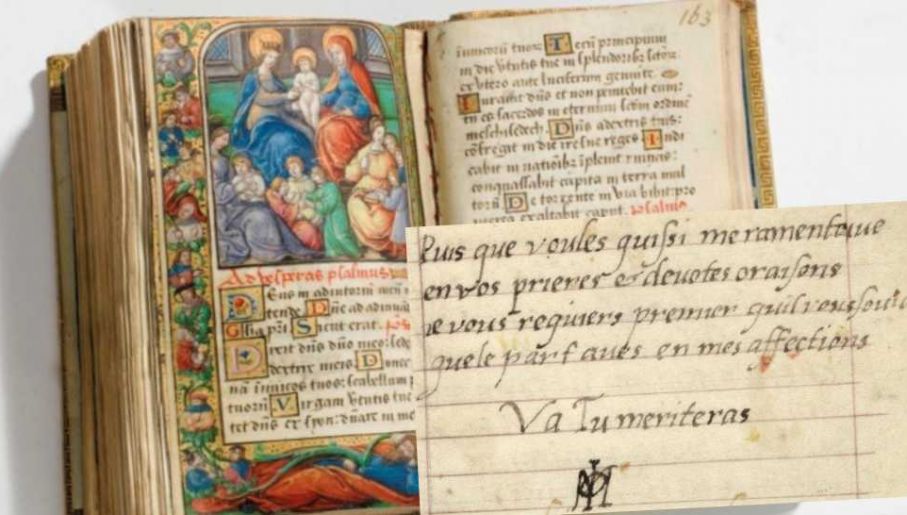 163
inimicorū tuorz Tecū principium
in die v̄tutis tue in splendoribz sctorz
ex vtero ante luciferum genui te
Iurauit dn̄s et non penitebit eum:
tu es sacerdos in eternum scd̄m ordinē
melchisedech. Dn̄s a dextris tuis:
cōfregit in die ire sue reges Iudi
cabit in nationibz īplebit ruinas:
conquassabit capita in terra mul
torū De torrente in via bibit: pro
pterea exaltabit caput. psalmus
Ad vesperas psalmus
Deus in adiutoriū meū ī
tende Dn̄e ad adiuuā
Glīa pr̄i Sicut erat. ps
Dixit dn̄s dn̄o meo: sede
a dextris meis. Donec
nā inimicos tuos: scabellum p
tuorū Virgam v̄tutis tue
tet dn̄s ex syon: dn̄are in me
Puis que voules quissi me ramentoiue
en vos prieres & devotes oraisons
Je vous requiers premier quil vous souui
quele part aues en mes affections
Va Tu meriteras